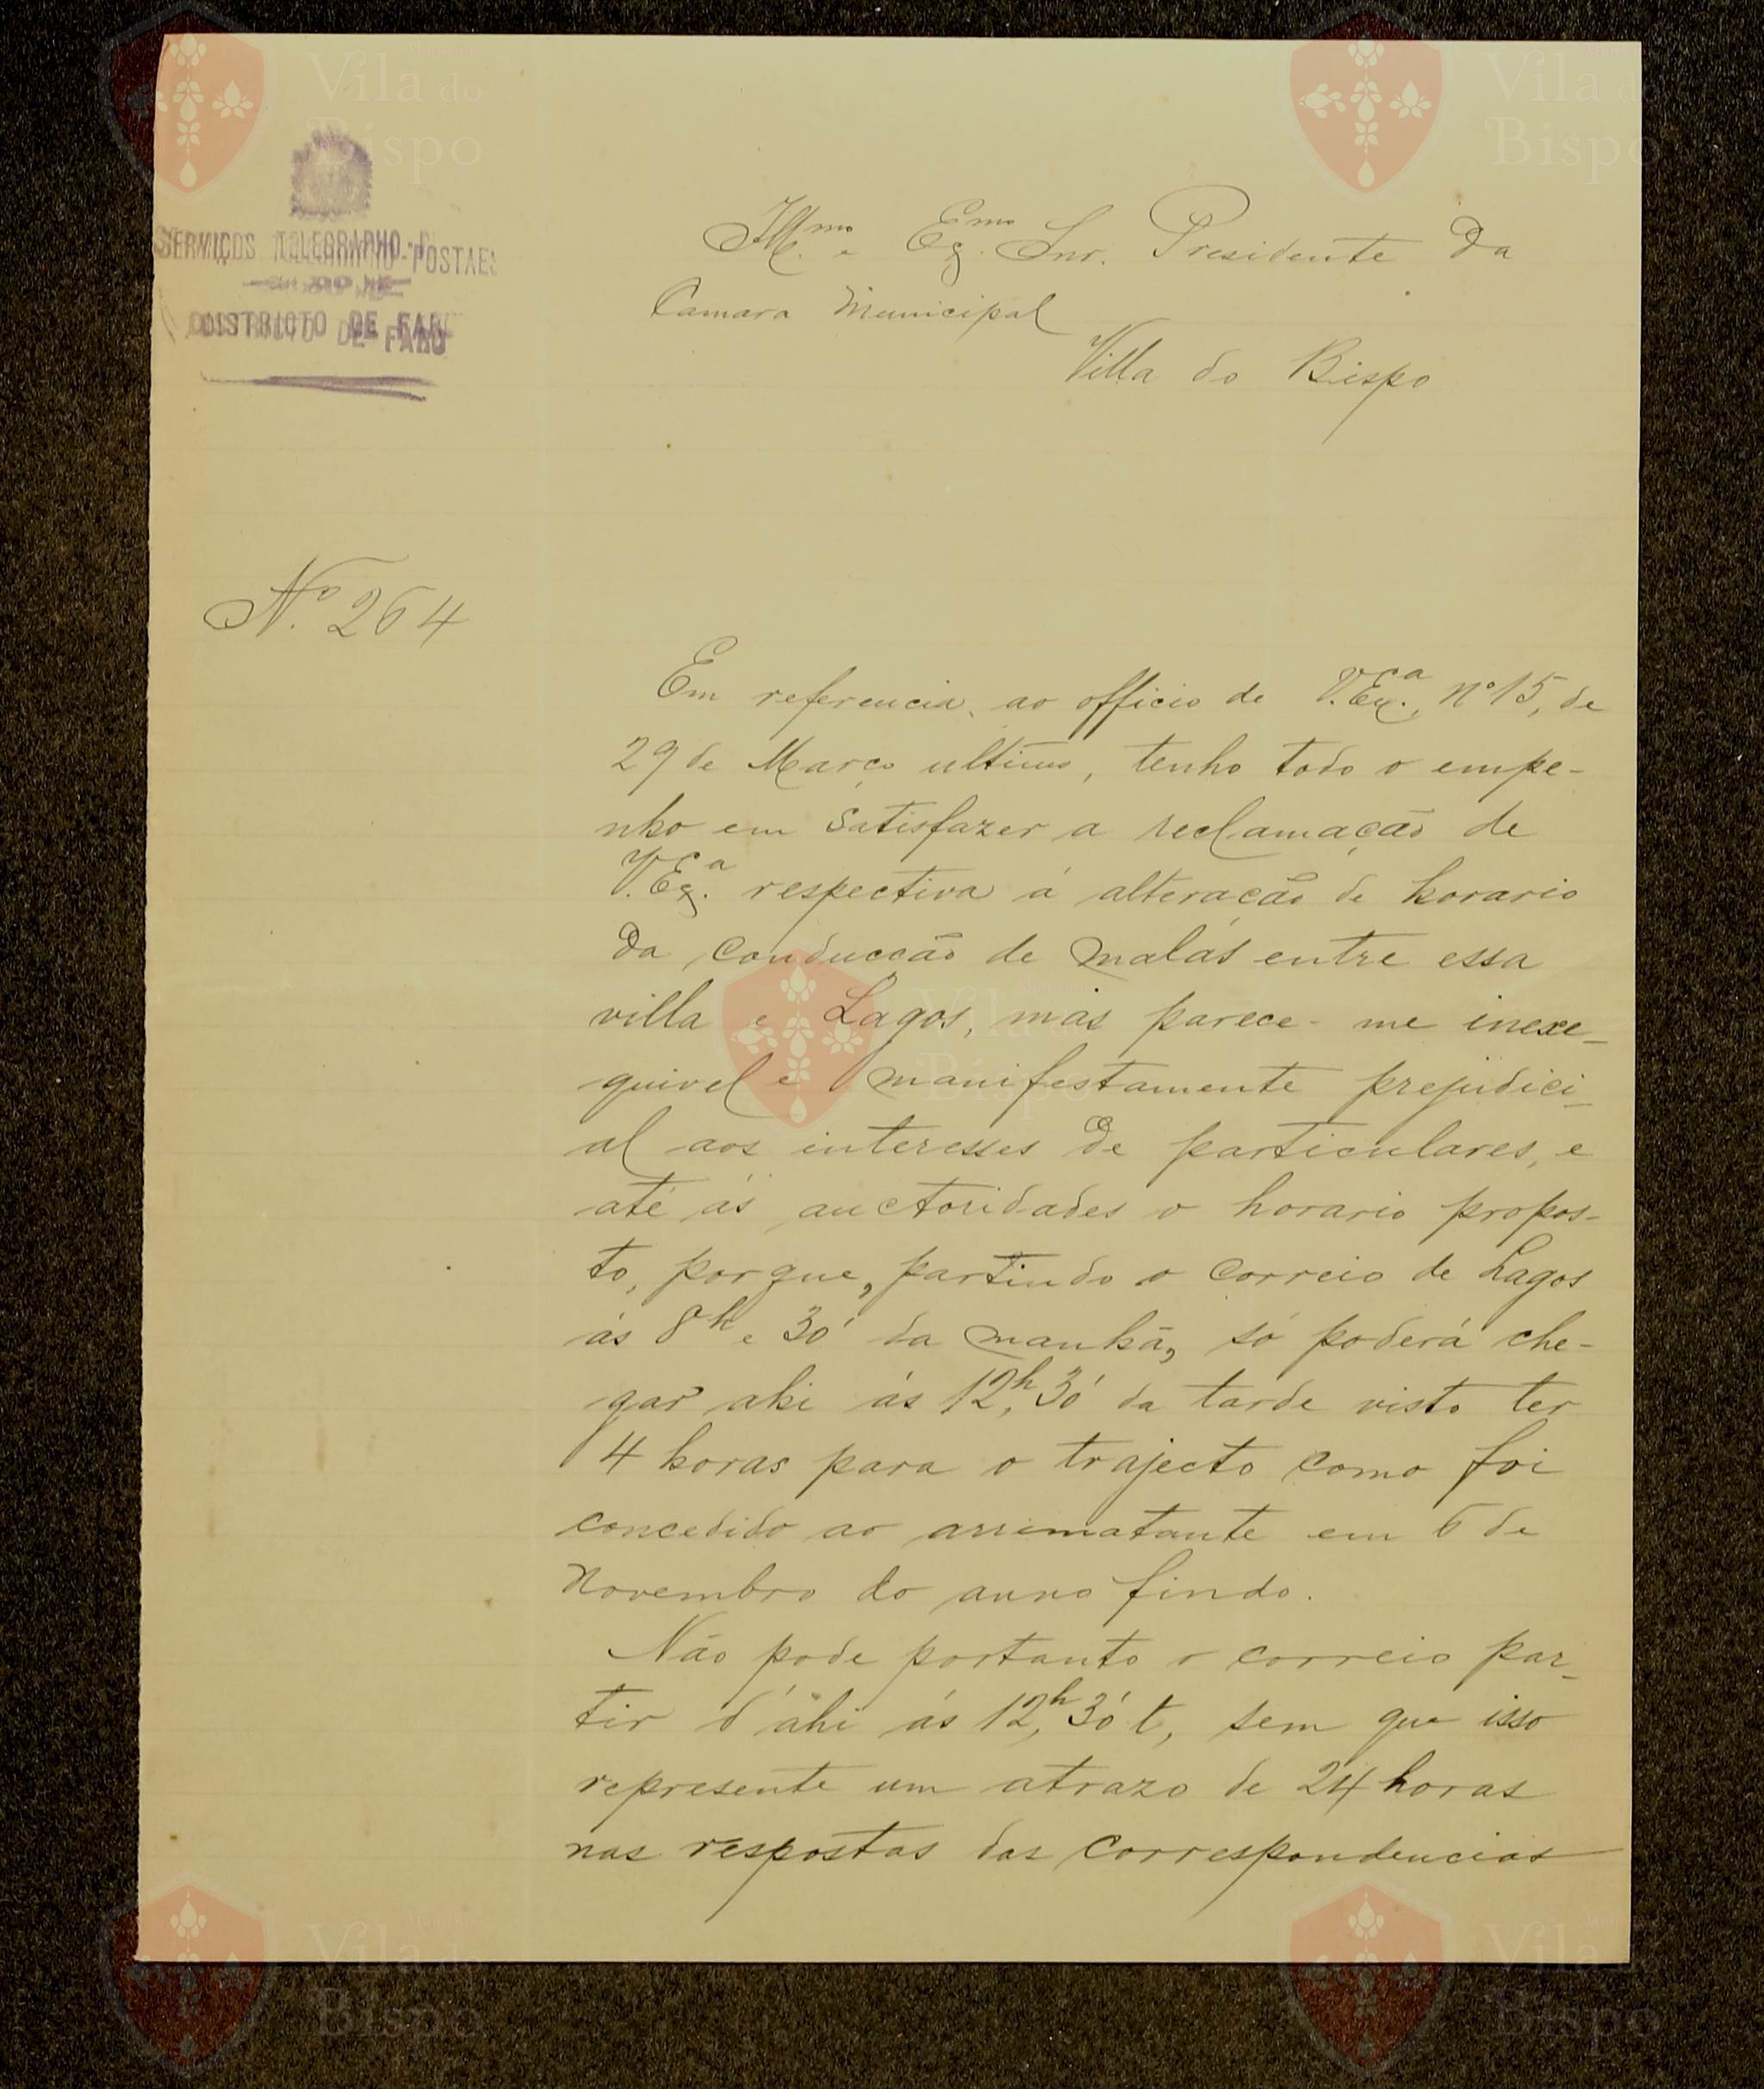 SERVIÇOS TELEGRAPHO-POSTAES
DISTRICTO DE FARO
Ill.mo e Ex.mo Snr. Presidente da
Camara Municipal
Villa do Bispo
Nº 264
Em referencia ao officio de V. Ex.cia, nº 15, de
29 de Março ultimo, tenho todo o empe-
nho em satisfazer a reclamação de
V. Ex.cia respectiva á alteração de horario
da conducção de malas entre essa
villa e Lagos, mas parece-me inexe-
quivel e manifestamente prejudici-
al aos interesses de particulares, e
até ás auctoridades o horario propos-
to, porque, partindo o correio de Lagos
ás 8h e 30' da manhã, só poderá che-
gar ahi ás 12h,30' da tarde visto ter
4 horas para o trajecto como foi
concedido ao arrematante em 6 de
Novembro do anno findo.
Não pode portanto o correio par-
tir d'ahi ás 12h,30' t, sem que isso
represente um atrazo de 24 horas
nas respostas das correspondencias
Vila do Bispo
Vila do Bispo
Vila do Bispo
Vila do Bispo
Vila do Bispo